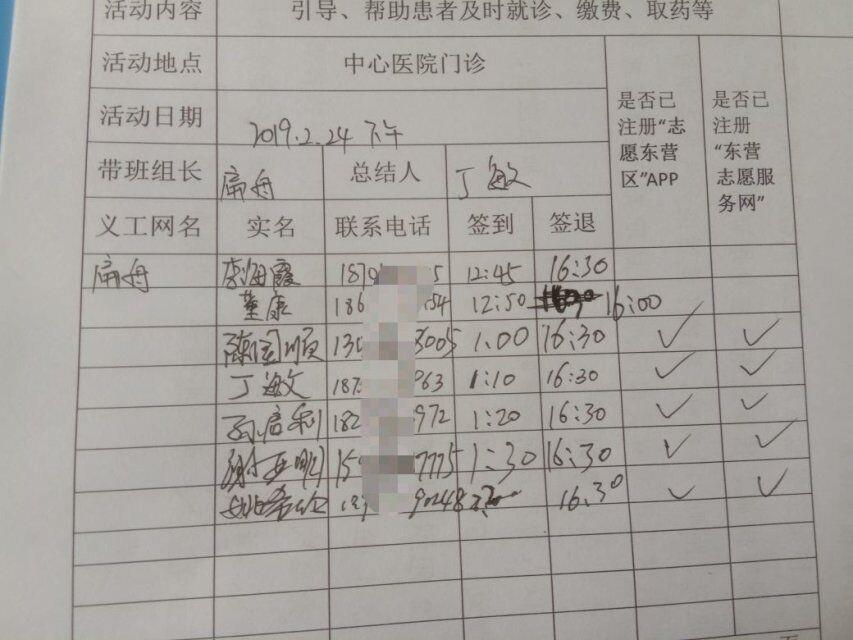 活动内容 引导、帮助患者及时就诊、缴费、取药等
活动地点 中心医院门诊
活动日期 2019.2.24 下午
带班组长 扁舟 总结人 丁敏
是否已注册“志愿东营区”APP
是否已注册“东营志愿服务网”
义工网名 实名 联系电话 签到 签退
扁舟 李海霞 187 5 12:45 16:30
董康 186 154 12:50 16:00
陈国顺 130 8005 1:00 16:30 ✓ ✓
丁敏 187 963 1:10 16:30 ✓ ✓
182 972 1:20 16:30 ✓ ✓
谢亚明 15 7775 1:30 16:30 ✓ ✓
90248 16:30 ✓ ✓